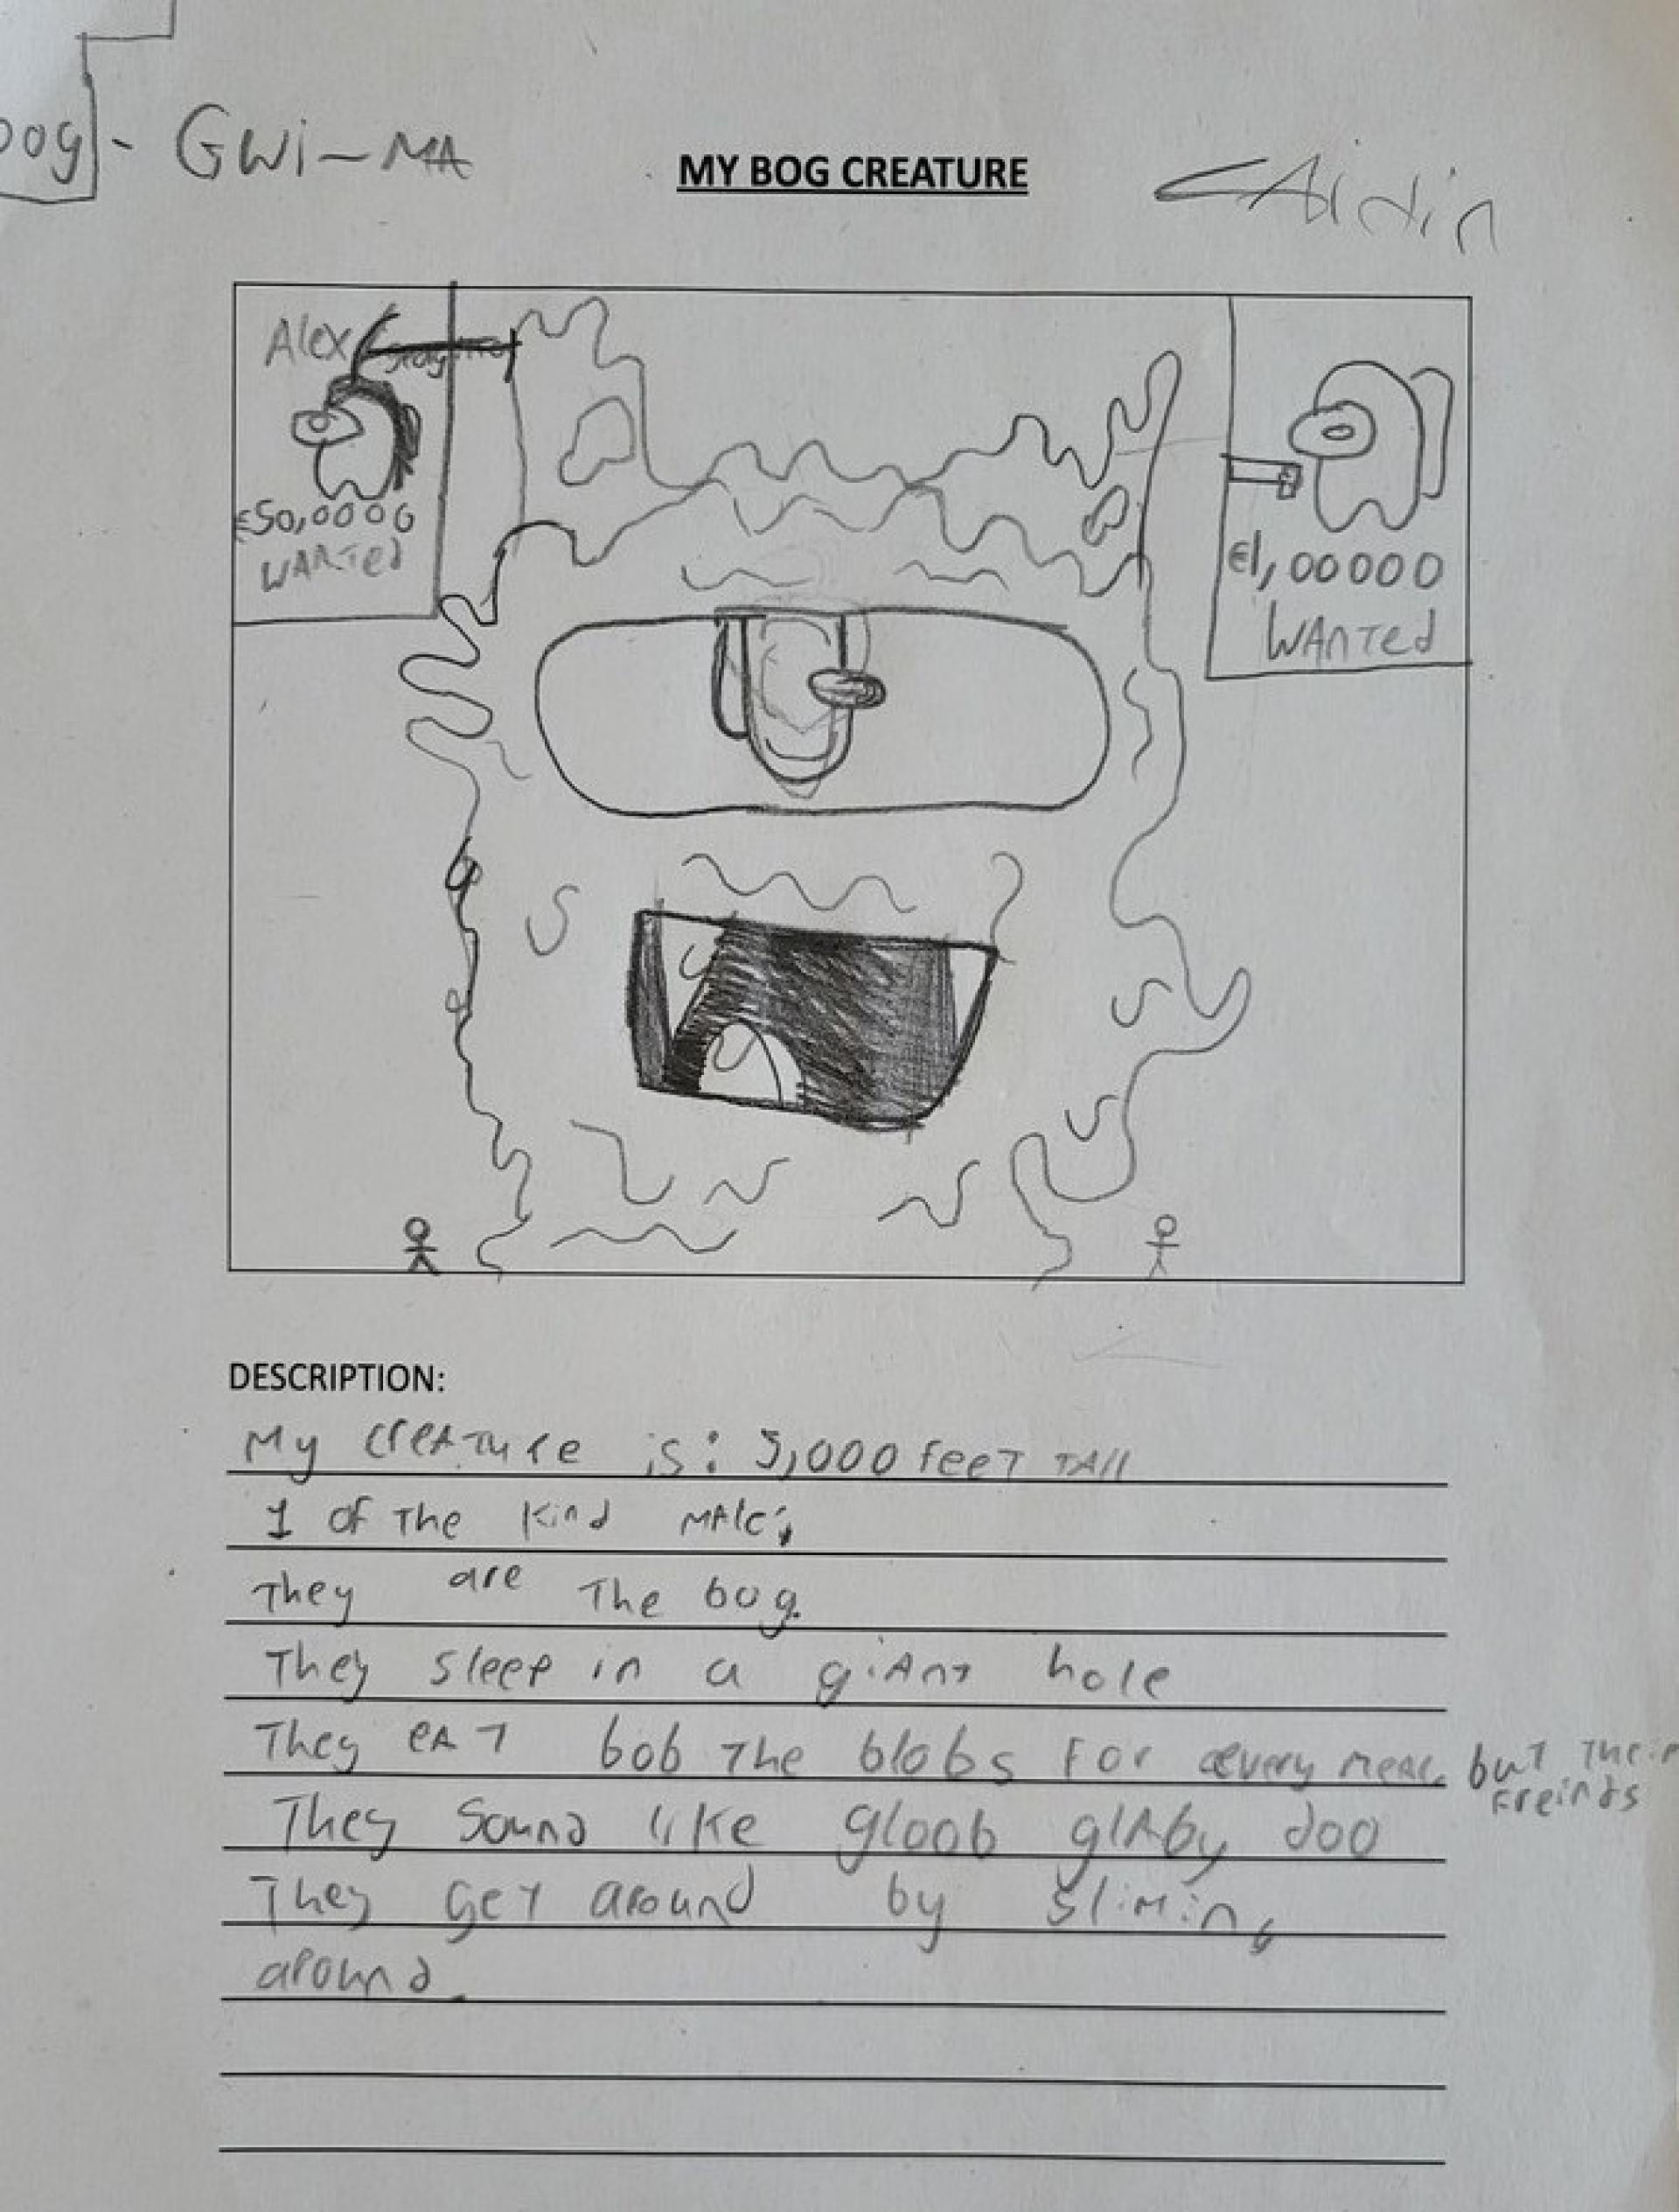 oog - Gwi-MA
MY BOG CREATURE
Aidin
Alex
€50,0000
WANTed
€1,00000
WANTed
DESCRIPTION:
My creATure is: 5,000 feeT TAll
1 of The kind MAle;
They are The bog.
They sleep in a giAnT hole
They eAT bob The blobs For every meal but Their
Freinds
They Sound like gloob glAby doo
They geT around by sliming
around.